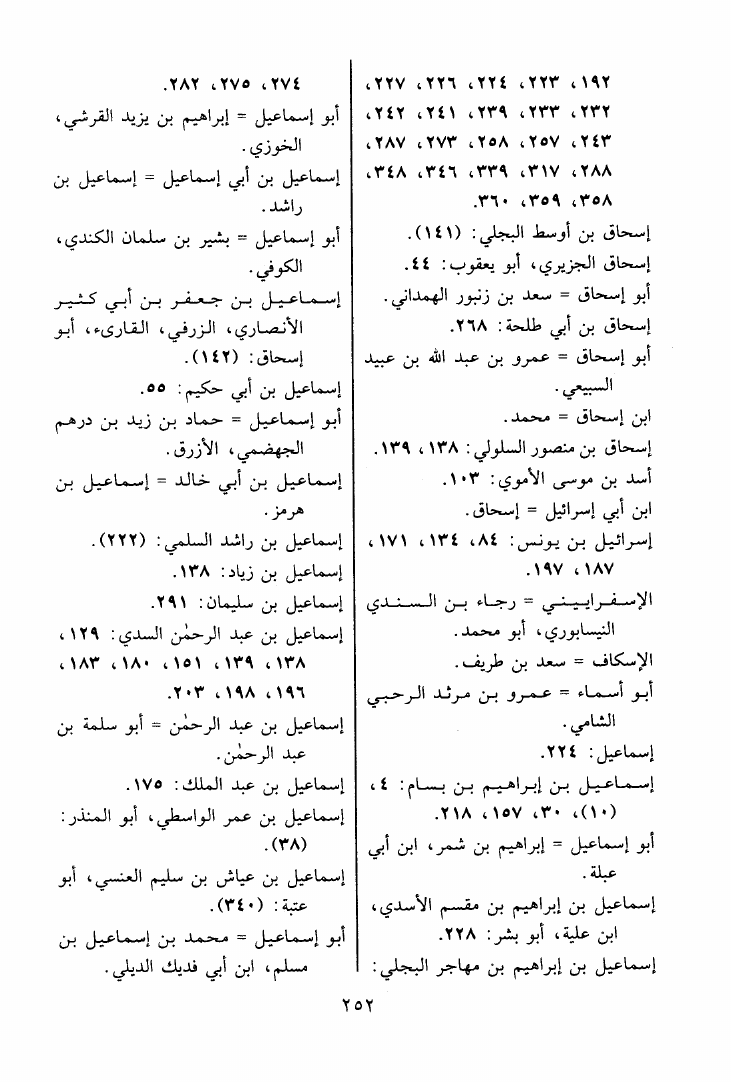 ١٩٢، ٢٢٣، ٢٢٤، ٢٢٦، ٢٢٧،
٢٣٢، ٢٣٣، ٢٣٩، ٢٤١، ٢٤٢،
٢٤٣، ٢٥٧، ٢٥٨، ٢٧٣، ٢٨٧،
٢٨٨، ٣١٧، ٣٣٩، ٣٤٦، ٣٤٨،
٣٥٨، ٣٥٩، ٣٦٠.
إسحاق بن أوسط البجلي: (١٤١).
إسحاق الجزيري، أبو يعقوب: ٤٤.
أبو إسحاق = سعد بن زنبور الهمداني.
إسحاق بن أبي طلحة: ٢٦٨.
أبو إسحاق = عمرو بن عبد الله بن عبيد
السبيعي.
ابن إسحاق = محمد.
إسحاق بن منصور السلولي: ١٣٨، ١٣٩.
أسد بن موسى الأموي: ١٠٣.
ابن أبي إسرائيل = إسحاق.
إسرائيل بن يونس: ٨٤، ١٣٤، ١٧١،
١٨٧، ١٩٧.
الإسفراييني = رجاء بن السندي
النيسابوري، أبو محمد.
الإسكاف = سعد بن طريف.
أبو أسماء = عمرو بن مرثد الرحبي
الشامي.
إسماعيل: ٢٢٤.
إسماعيل بن إبراهيم بن بسام: ٤،
(١٠)، ٣٠، ١٥٧، ٢١٨.
أبو إسماعيل = إبراهيم بن شمر، ابن أبي
عبلة.
إسماعيل بن إبراهيم بن مقسم الأسدي،
ابن علية، أبو بشر: ٢٢٨.
إسماعيل بن إبراهيم بن مهاجر البجلي:
٢٧٤، ٢٧٥، ٢٨٢.
أبو إسماعيل = إبراهيم بن يزيد القرشي،
الخوزي.
إسماعيل بن أبي إسماعيل = إسماعيل بن
راشد.
أبو إسماعيل = بشير بن سلمان الكندي،
الكوفي.
إسماعيل بن جعفر بن أبي كثير
الأنصاري، الزرقي، القارىء، أبو
إسحاق: (١٤٢).
إسماعيل بن أبي حكيم: ٥٥.
أبو إسماعيل = حماد بن زيد بن درهم
الجهضمي، الأزرق.
إسماعيل بن أبي خالد = إسماعيل بن
هرمز.
إسماعيل بن راشد السلمي: (٢٢٢).
إسماعيل بن زياد: ١٣٨.
إسماعيل بن سليمان: ٢٩١.
إسماعيل بن عبد الرحمٰن السدي: ١٢٩،
١٣٨، ١٣٩، ١٥١، ١٨٠، ١٨٣،
١٩٦، ١٩٨، ٢٠٣.
إسماعيل بن عبد الرحمٰن = أبو سلمة بن
عبد الرحمٰن.
إسماعيل بن عبد الملك: ١٧٥.
إسماعيل بن عمر الواسطي، أبو المنذر:
(٣٨).
إسماعيل بن عياش بن سليم العنسي، أبو
عتبة: (٣٤٠).
أبو إسماعيل = محمد بن إسماعيل بن
مسلم، ابن أبي فديك الديلي.
٢٥٢